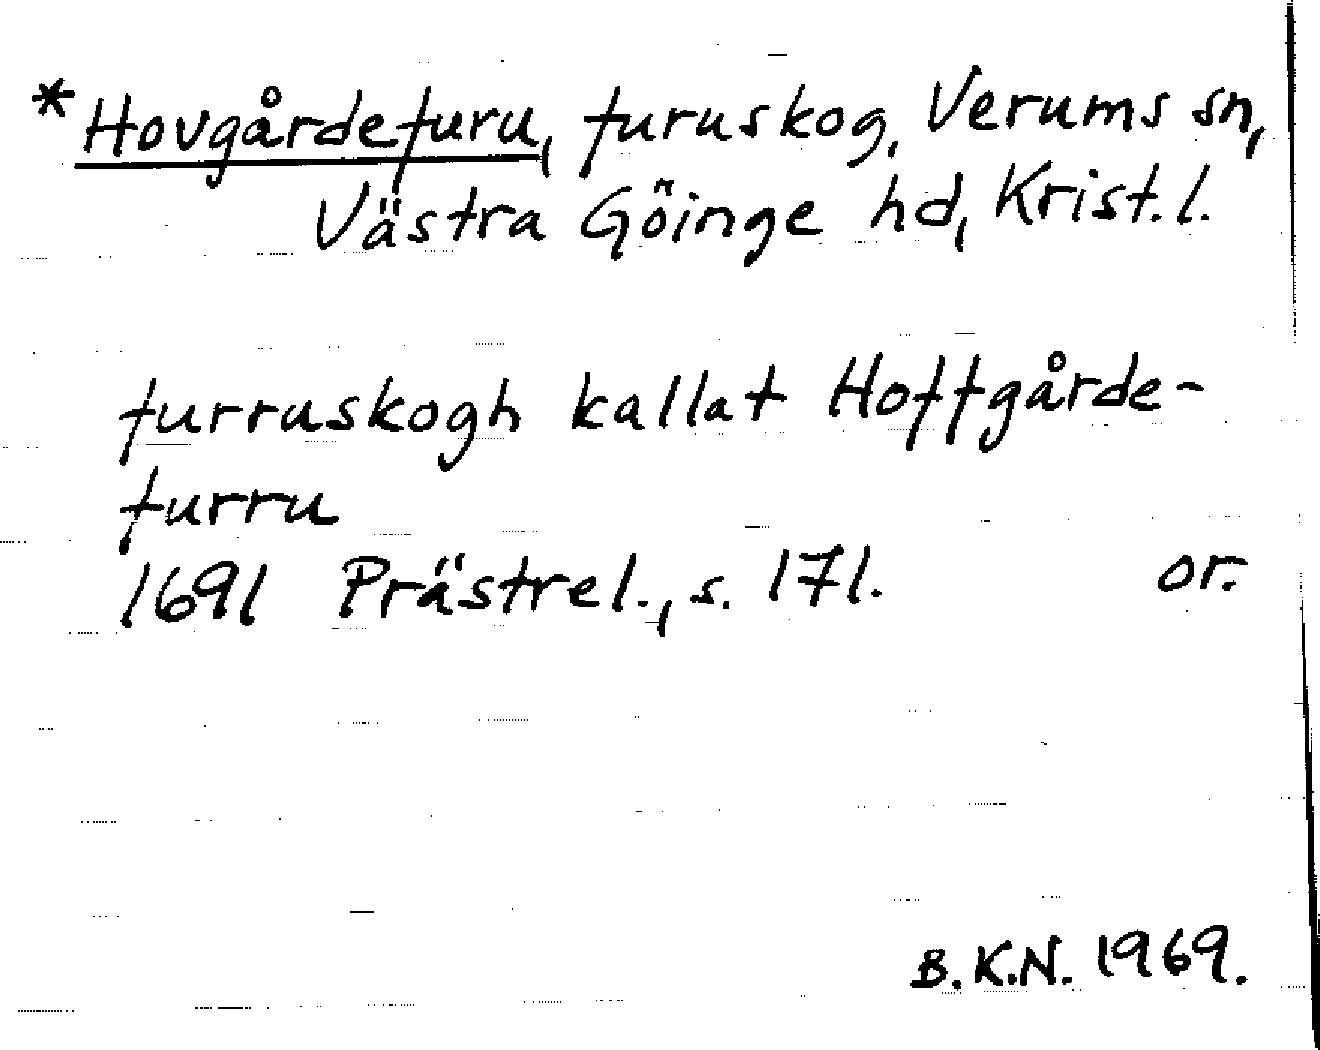 *Hovgårdefuru, furuskog, Verums sn,
Västra Göinge hd, Krist. l.
furruskogh kallat Hoffgårde-
furru
1691 Prästrel., s. 171. or.
B.K.N. 1969.